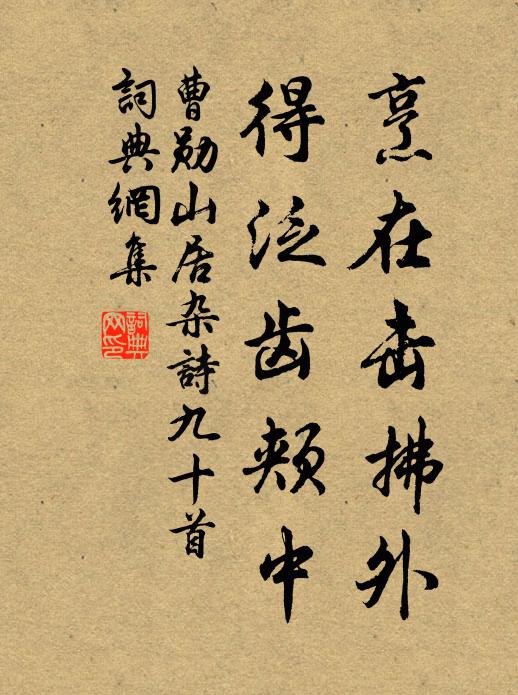 烹在击拂外
得泛齿颊中
曹勋山居杂詩九十首
詞典網集
詞典網印